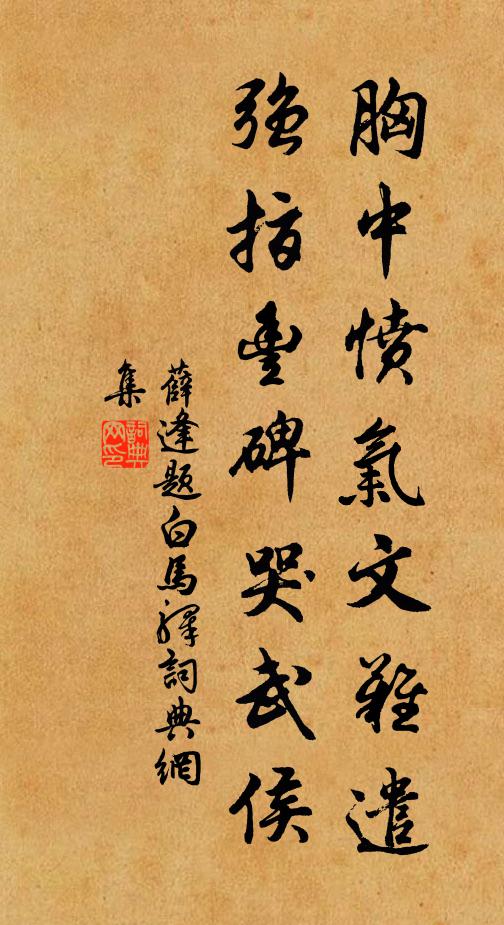 胸中憤氣文難遣
強指豐碑哭武侯
薛逢題白馬驛詞典網
集
詞典網印